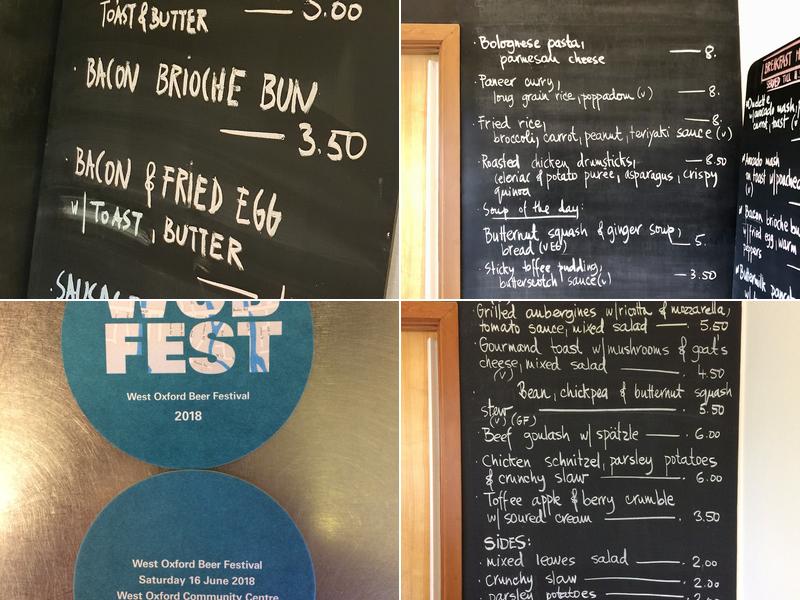 TOAST & BUTTER — 3.00
· BACON BRIOCHE BUN
— 3.50
· BACON & FRIED EGG
w/ TOAST, BUTTER
· Bolognese pasta, — 8.
parmesan cheese
· Paneer curry, — 8.
long grain rice, poppadom (v)
· Fried rice, — 8.
broccoli, carrot, peanut, teriyaki sauce (v)
· Roasted chicken drumsticks, — 8.50
celeriac & potato purée, asparagus, crispy
quinoa
· Soup of the day:
Butternut squash & ginger soup,
bread (vEG) — 5.
· Sticky toffee pudding,
butterscotch sauce (v) — 3.50
BREAKFAST
SERVED TILL
avocado mash,
carrot, toast
Avocado mash
on toast w/ poached
(v)
Bacon brioche
w/ fried egg, warm
peppers
Buttermilk
FEST
West Oxford Beer Festival
2018
West Oxford Beer Festival
Saturday 16 June 2018
West Oxford Community Centre
· Grilled aubergines w/ ricotta & mozzarella,
tomato sauce, mixed salad — 5.50
· Gourmand toast w/ mushrooms & goat's
cheese, mixed salad — 4.50
(v)
· Bean, chickpea & butternut squash
stew — 5.50
(v) (GF)
· Beef goulash w/ spätzle — 6.00
· Chicken schnitzel, parsley potatoes
& crunchy slaw — 6.00
· Toffee apple & berry crumble
w/ soured cream — 3.50
SIDES:
· mixed leaves salad — 2.00
· crunchy slaw — 2.00
· parsley potatoes